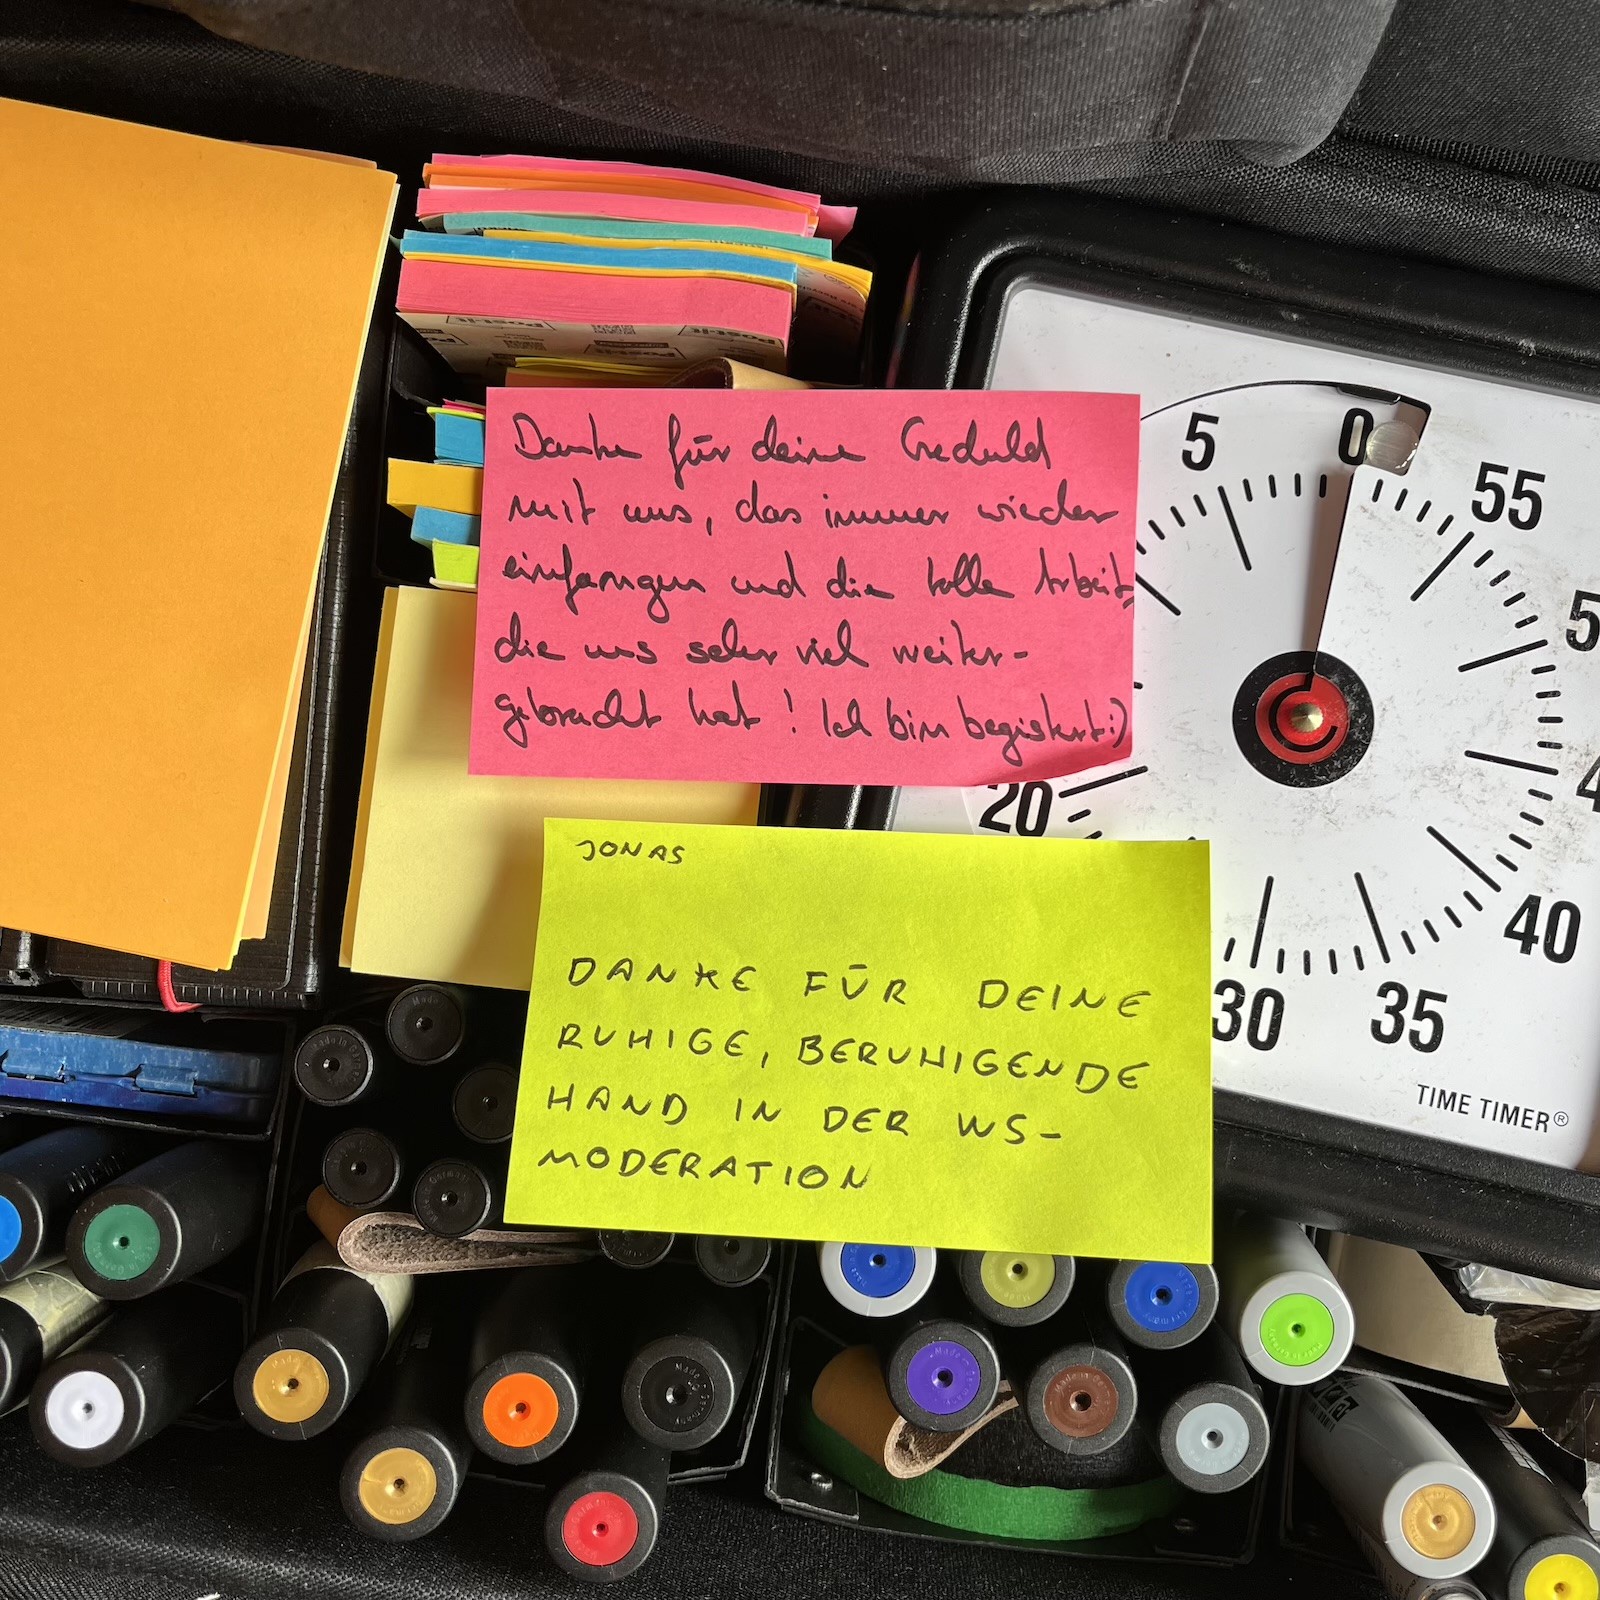 Post-it
Post-it
Post-it
Danke für deine Geduld
mit uns, das immer wieder
einfangen und die tolle Arbeit,
die uns sehr viel weiter-
gebracht hat! Ich bin begeistert :)
5
0
55
20
40
30
35
TIME TIMER®
JONAS
DANKE FÜR DEINE
RUHIGE, BERUHIGENDE
HAND IN DER WS-
MODERATION